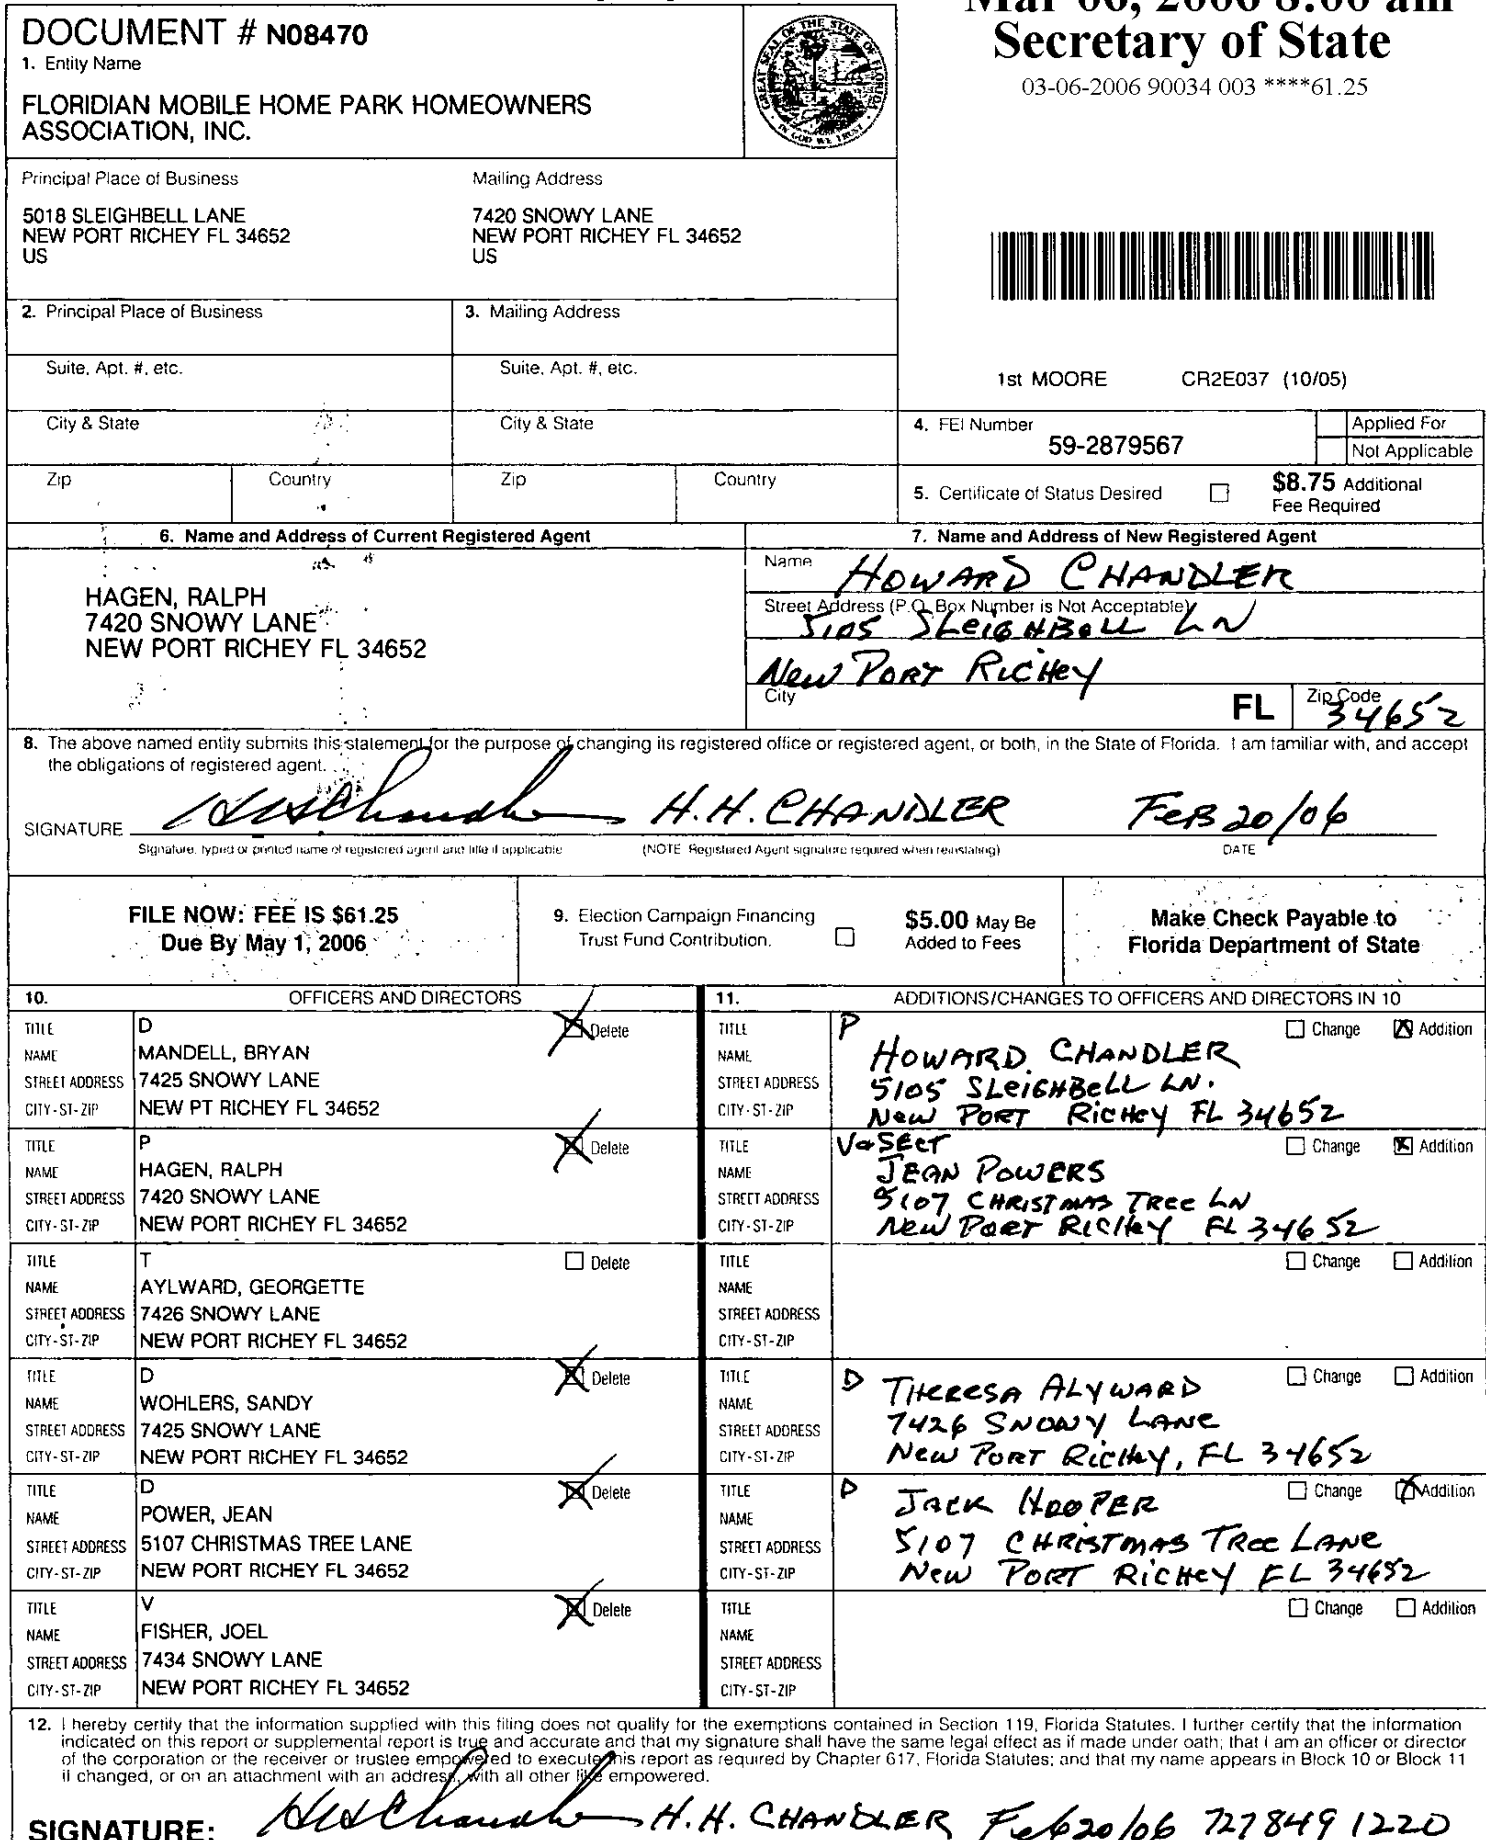 DOCUMENT # N08470
1. Entity Name
FLORIDIAN MOBILE HOME PARK HOMEOWNERS
ASSOCIATION, INC.
GREAT SEAL OF THE STATE OF FLORIDA
IN GOD WE TRUST
Mar 06, 2006 8:00 am
Secretary of State
03-06-2006 90034 003 ****61.25
Principal Place of Business
5018 SLEIGHBELL LANE
NEW PORT RICHEY FL 34652
US
Mailing Address
7420 SNOWY LANE
NEW PORT RICHEY FL 34652
US
2. Principal Place of Business
3. Mailing Address
Suite, Apt. #, etc.
Suite, Apt. #, etc.
1st MOORE CR2E037 (10/05)
City & State
City & State
4. FEI Number
59-2879567
Applied For
Not Applicable
Zip
Country
Zip
Country
5. Certificate of Status Desired
$8.75 Additional
Fee Required
6. Name and Address of Current Registered Agent
HAGEN, RALPH
7420 SNOWY LANE
NEW PORT RICHEY FL 34652
7. Name and Address of New Registered Agent
Name HOWARD CHANDLER
Street Address (P.O. Box Number is Not Acceptable)
5105 SLEIGHBELL LN
NEW PORT RICHEY
City
FL
Zip Code
34652
8. The above named entity submits this statement for the purpose of changing its registered office or registered agent, or both, in the State of Florida. I am familiar with, and accept
the obligations of registered agent.
SIGNATURE HH Chandler H.H. CHANDLER FEB 20/06
Signature, typed or printed name of registered agent and title if applicable (NOTE Registered Agent signature required when reinstating) DATE
FILE NOW: FEE IS $61.25
Due By May 1, 2006
9. Election Campaign Financing
Trust Fund Contribution.
$5.00 May Be
Added to Fees
Make Check Payable to
Florida Department of State
10. OFFICERS AND DIRECTORS
11. ADDITIONS/CHANGES TO OFFICERS AND DIRECTORS IN 10
TITLE D Delete
NAME MANDELL, BRYAN
STREET ADDRESS 7425 SNOWY LANE
CITY-ST-ZIP NEW PT RICHEY FL 34652
TITLE P Change Addition
NAME HOWARD CHANDLER
STREET ADDRESS 5105 SLEIGHBELL LN.
CITY-ST-ZIP NEW PORT RICHEY FL 34652
TITLE P Delete
NAME HAGEN, RALPH
STREET ADDRESS 7420 SNOWY LANE
CITY-ST-ZIP NEW PORT RICHEY FL 34652
TITLE V&SECT Change Addition
NAME JEAN POWERS
STREET ADDRESS 5107 CHRISTMAS TREE LN
CITY-ST-ZIP NEW PORT RICHEY FL 34652
TITLE T Delete
NAME AYLWARD, GEORGETTE
STREET ADDRESS 7426 SNOWY LANE
CITY-ST-ZIP NEW PORT RICHEY FL 34652
TITLE Change Addition
NAME
STREET ADDRESS
CITY-ST-ZIP
TITLE D Delete
NAME WOHLERS, SANDY
STREET ADDRESS 7425 SNOWY LANE
CITY-ST-ZIP NEW PORT RICHEY FL 34652
TITLE D Change Addition
NAME THERESA ALYWARD
STREET ADDRESS 7426 SNOWY LANE
CITY-ST-ZIP NEW PORT RICHEY, FL 34652
TITLE D Delete
NAME POWER, JEAN
STREET ADDRESS 5107 CHRISTMAS TREE LANE
CITY-ST-ZIP NEW PORT RICHEY FL 34652
TITLE D Change Addition
NAME JACK HOOPER
STREET ADDRESS 5107 CHRISTMAS TREE LANE
CITY-ST-ZIP NEW PORT RICHEY FL 34652
TITLE V Delete
NAME FISHER, JOEL
STREET ADDRESS 7434 SNOWY LANE
CITY-ST-ZIP NEW PORT RICHEY FL 34652
TITLE Change Addition
NAME
STREET ADDRESS
CITY-ST-ZIP
12. I hereby certify that the information supplied with this filing does not qualify for the exemptions contained in Section 119, Florida Statutes. I further certify that the information
indicated on this report or supplemental report is true and accurate and that my signature shall have the same legal effect as if made under oath; that I am an officer or director
of the corporation or the receiver or trustee empowered to execute this report as required by Chapter 617, Florida Statutes; and that my name appears in Block 10 or Block 11
if changed, or on an attachment with an address, with all other like empowered.
SIGNATURE: HH Chandler H.H. CHANDLER Feb 20/06 727 849 1220